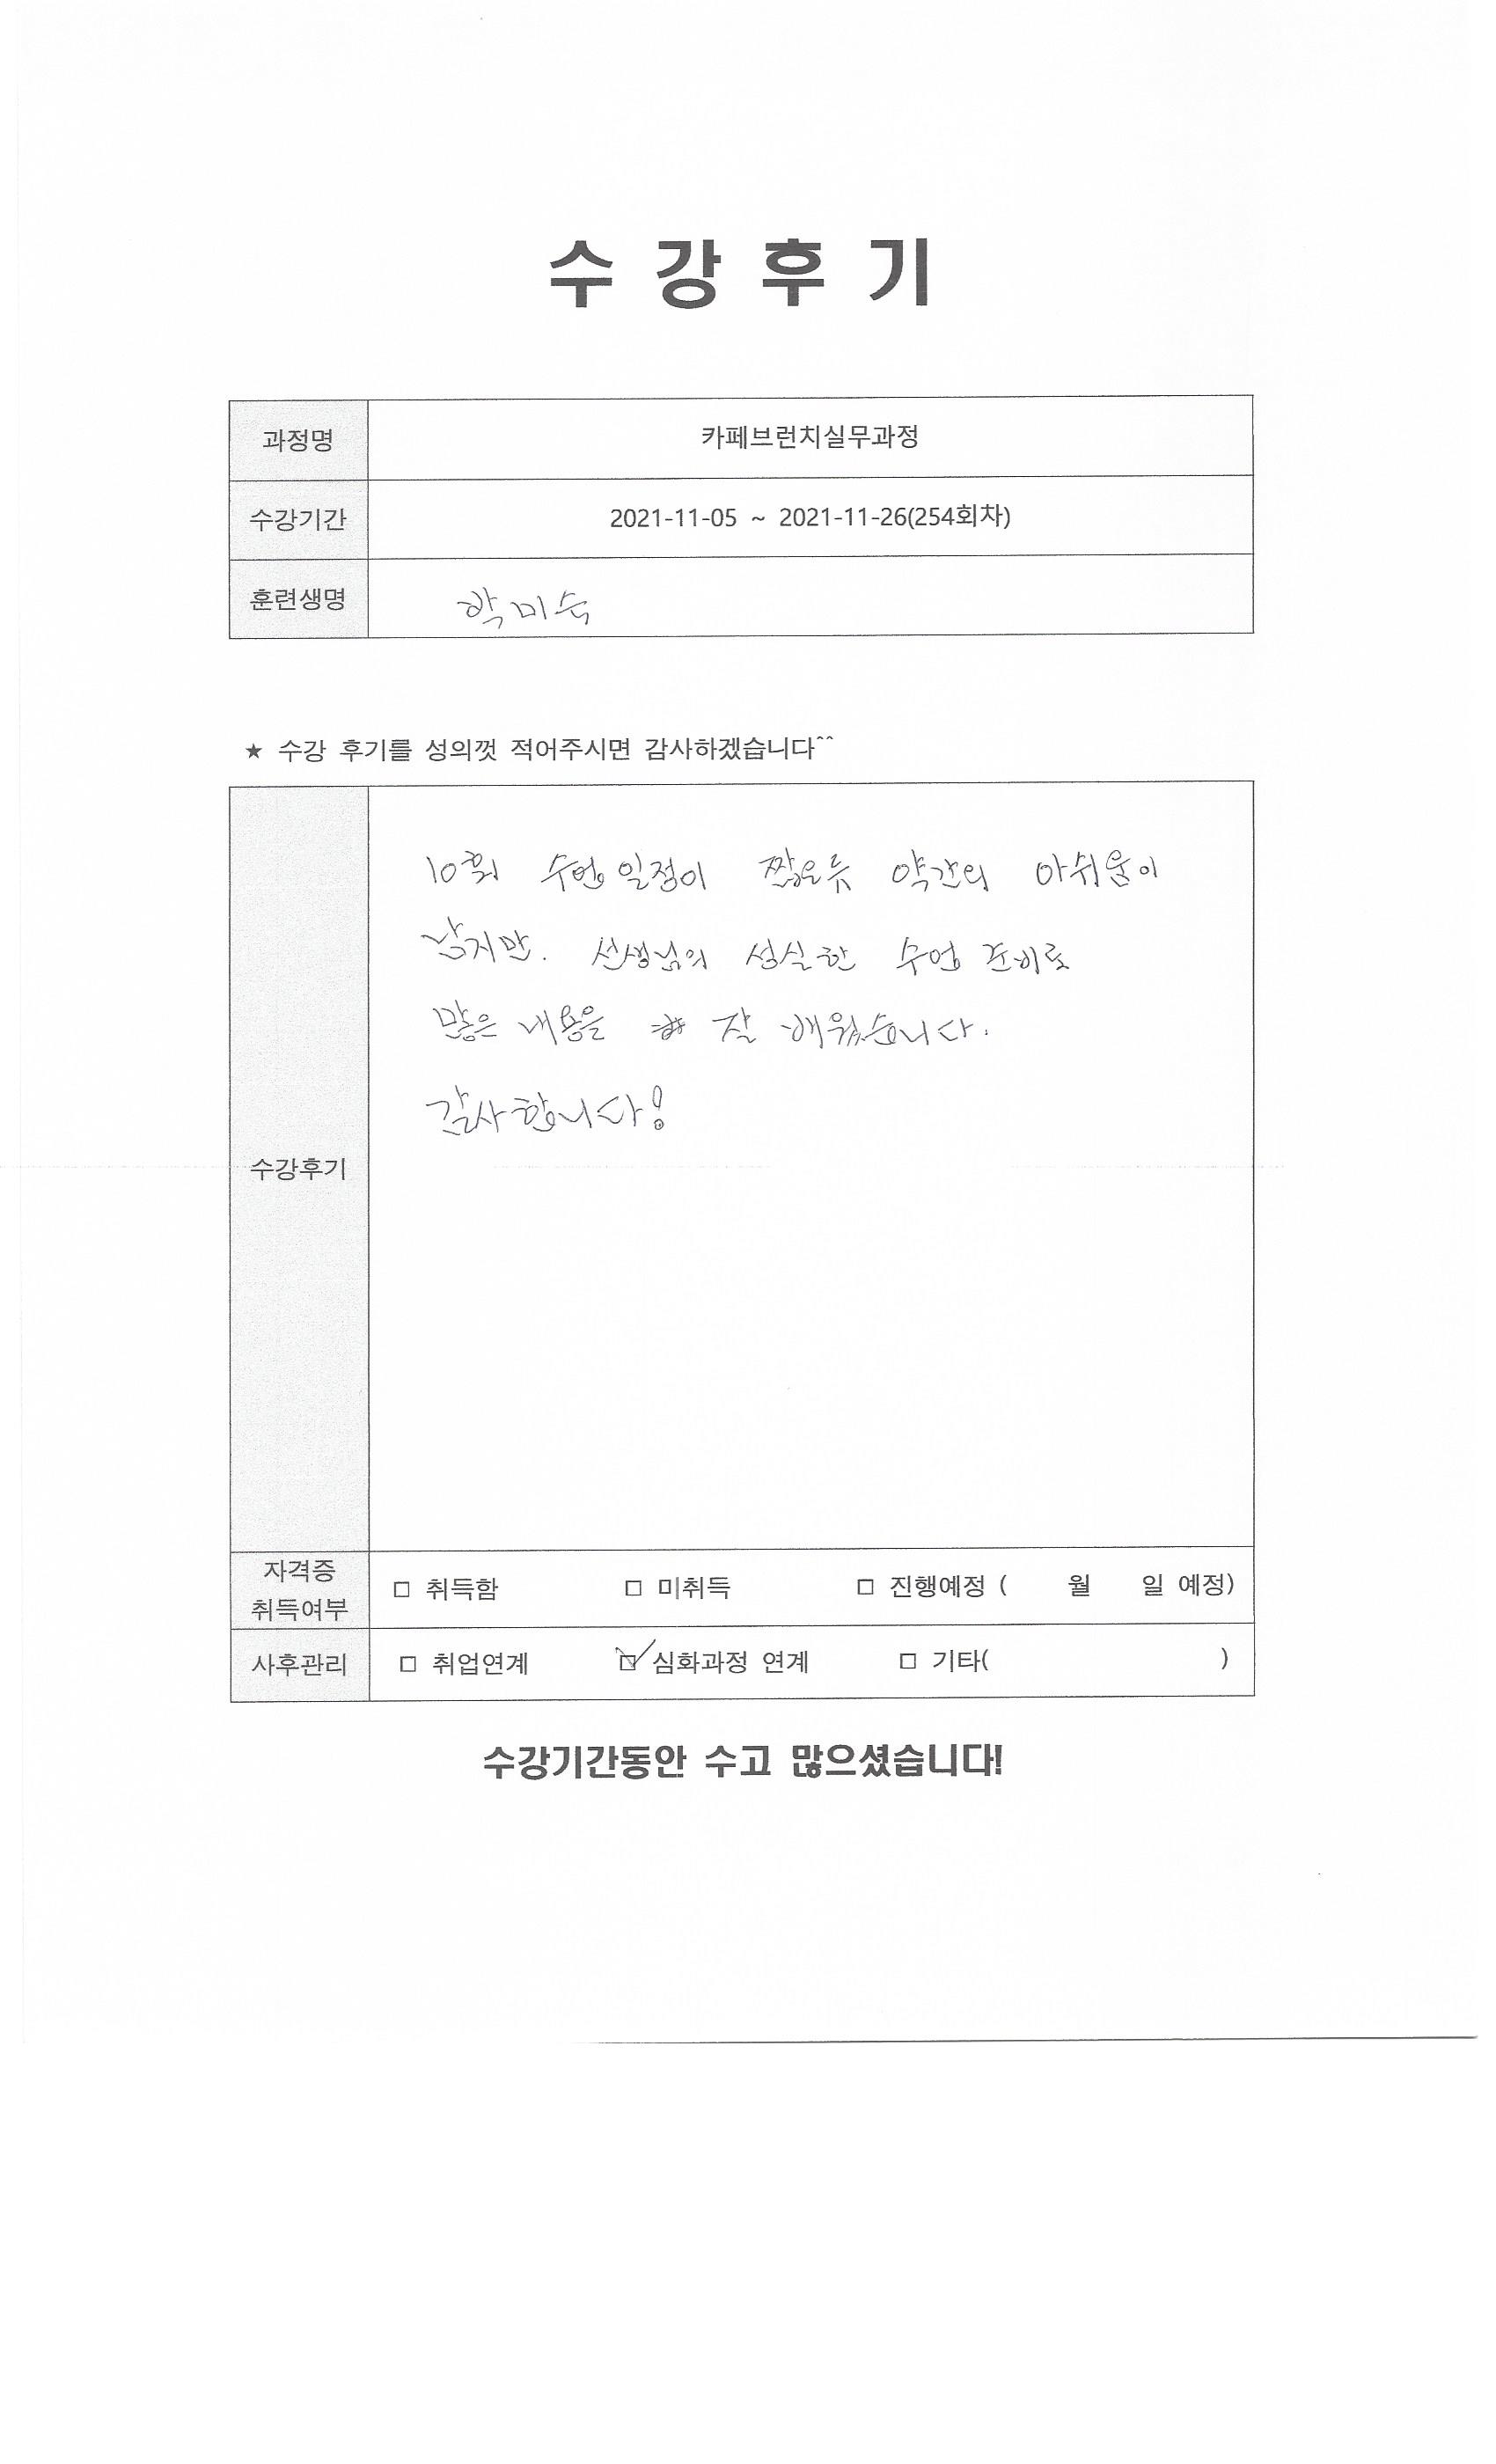 수 강 후 기
과정명 카페브런치실무과정
수강기간 2021-11-05 ~ 2021-11-26(254회차)
훈련생명 학미숙
★ 수강 후기를 성의껏 적어주시면 감사하겠습니다^^
10회 수업 일정이 짧은듯 약간의 아쉬움이
남지만. 선생님의 성실한 수업 준비로
많은 내용을 잘 배웠습니다.
감사합니다!
수강후기
자격증
취득여부 □ 취득함 □ 미취득 □ 진행예정 ( 월 일 예정)
사후관리 □ 취업연계 ☑ 심화과정 연계 □ 기타( )
수강기간동안 수고 많으셨습니다!